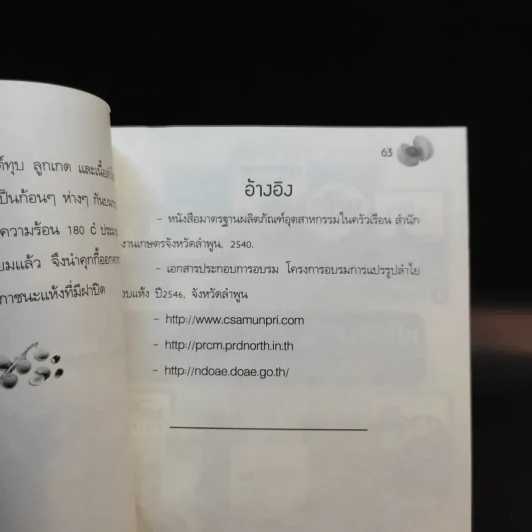 ทุบ ลูกเกด และเนื้อ
เป็นก้อนๆ ห่างๆ กัน
ความร้อน 180 c
มแล้ว จึงนำคุกกี้ออก
ภาชนะแห้งที่มีฝาปิด
63
อ้างอิง
- หนังสือมาตรฐานผลิตภัณฑ์อุตสาหกรรมในครัวเรือน สำนัก
งานเกษตรจังหวัดลำพูน, 2540.
- เอกสารประกอบการอบรม โครงการอบรมการแปรรูปลำไย
อบแห้ง ปี2546, จังหวัดลำพูน
- http://www.csamunpri.com
- http://prcm.prdnorth.in.th
- http://ndoae.doae.go.th/